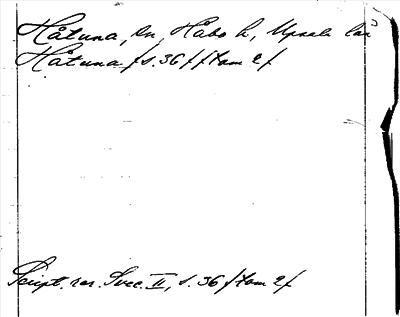 Håtuna, sn, Håbo h, Upsala län
Håtuna /s. 36/ /Tom 2/
Script. rer. Svec. II, s. 36 /Tom 2/